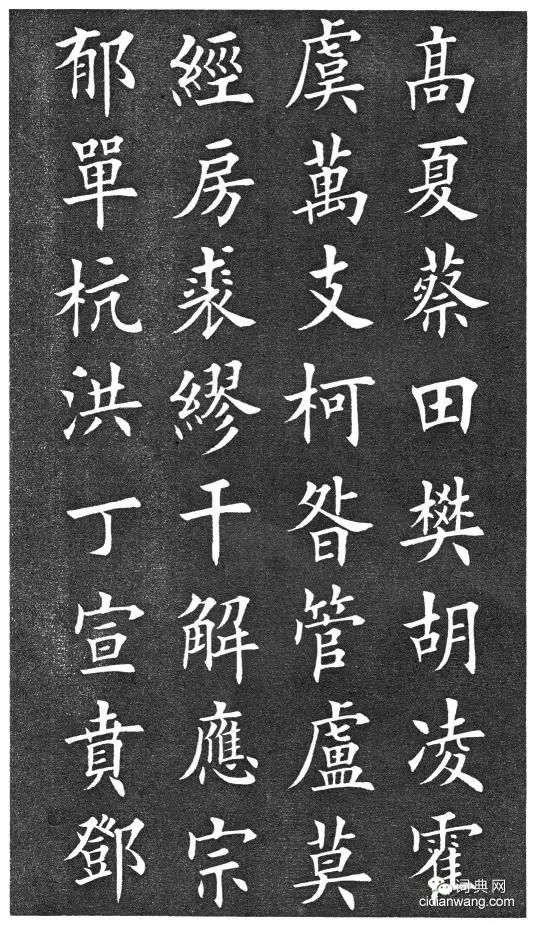 髙夏蔡田樊胡凌霍
虞萬支柯昝管盧莫
經房裘繆干解應宗
郁單杭洪丁宣賁鄧
词典网
cidianwang.com